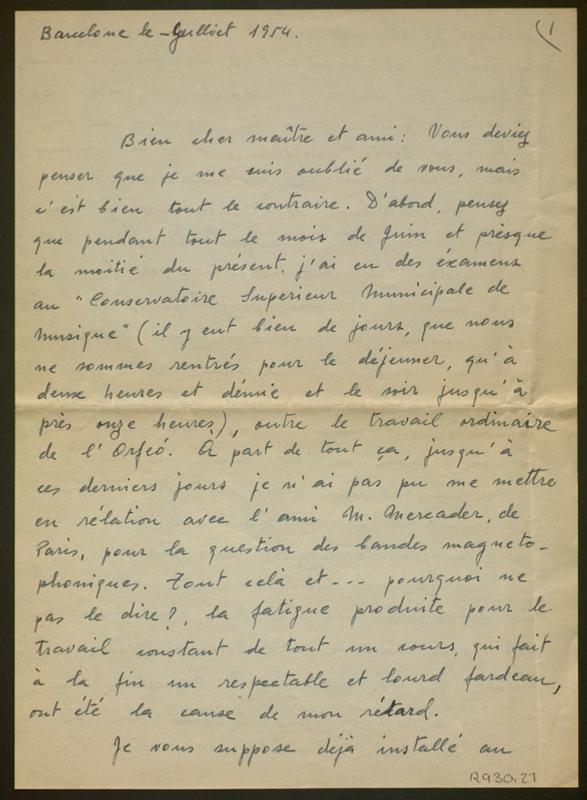 Barcelone le - Juillet 1954.
1
Bien cher maître et ami: Vous deviez
penser que je me suis oublié de vous, mais
c'est bien tout le contraire. D'abord, pensez
que pendant tout le mois de Juin et presque
la moitié du présent, j'ai eu des éxamens
au "Conservatoire Superieur Municipale de
Musique" (il y eut bien de jours, que nous
ne sommes rentrés pour le déjeuner, qu'à
deux heures et démie et le soir jusqu'à
près onze heures), outre le travail ordinaire
de l'Orfeó. A part de tout ça, jusqu'à
ces derniers jours je n'ai pas pu me mettre
en rélation avec l'ami M. Mercader, de
Paris, pour la question des bandes magneto-
phoniques. Tout celà et --- pourquoi ne
pas le dire?, la fatigue produite pour le
travail constant de tout un cours, qui fait
à la fin un respectable et lourd fardeau,
ont été la cause de mon rétard.
Je vous suppose déjà installé au
R930,21